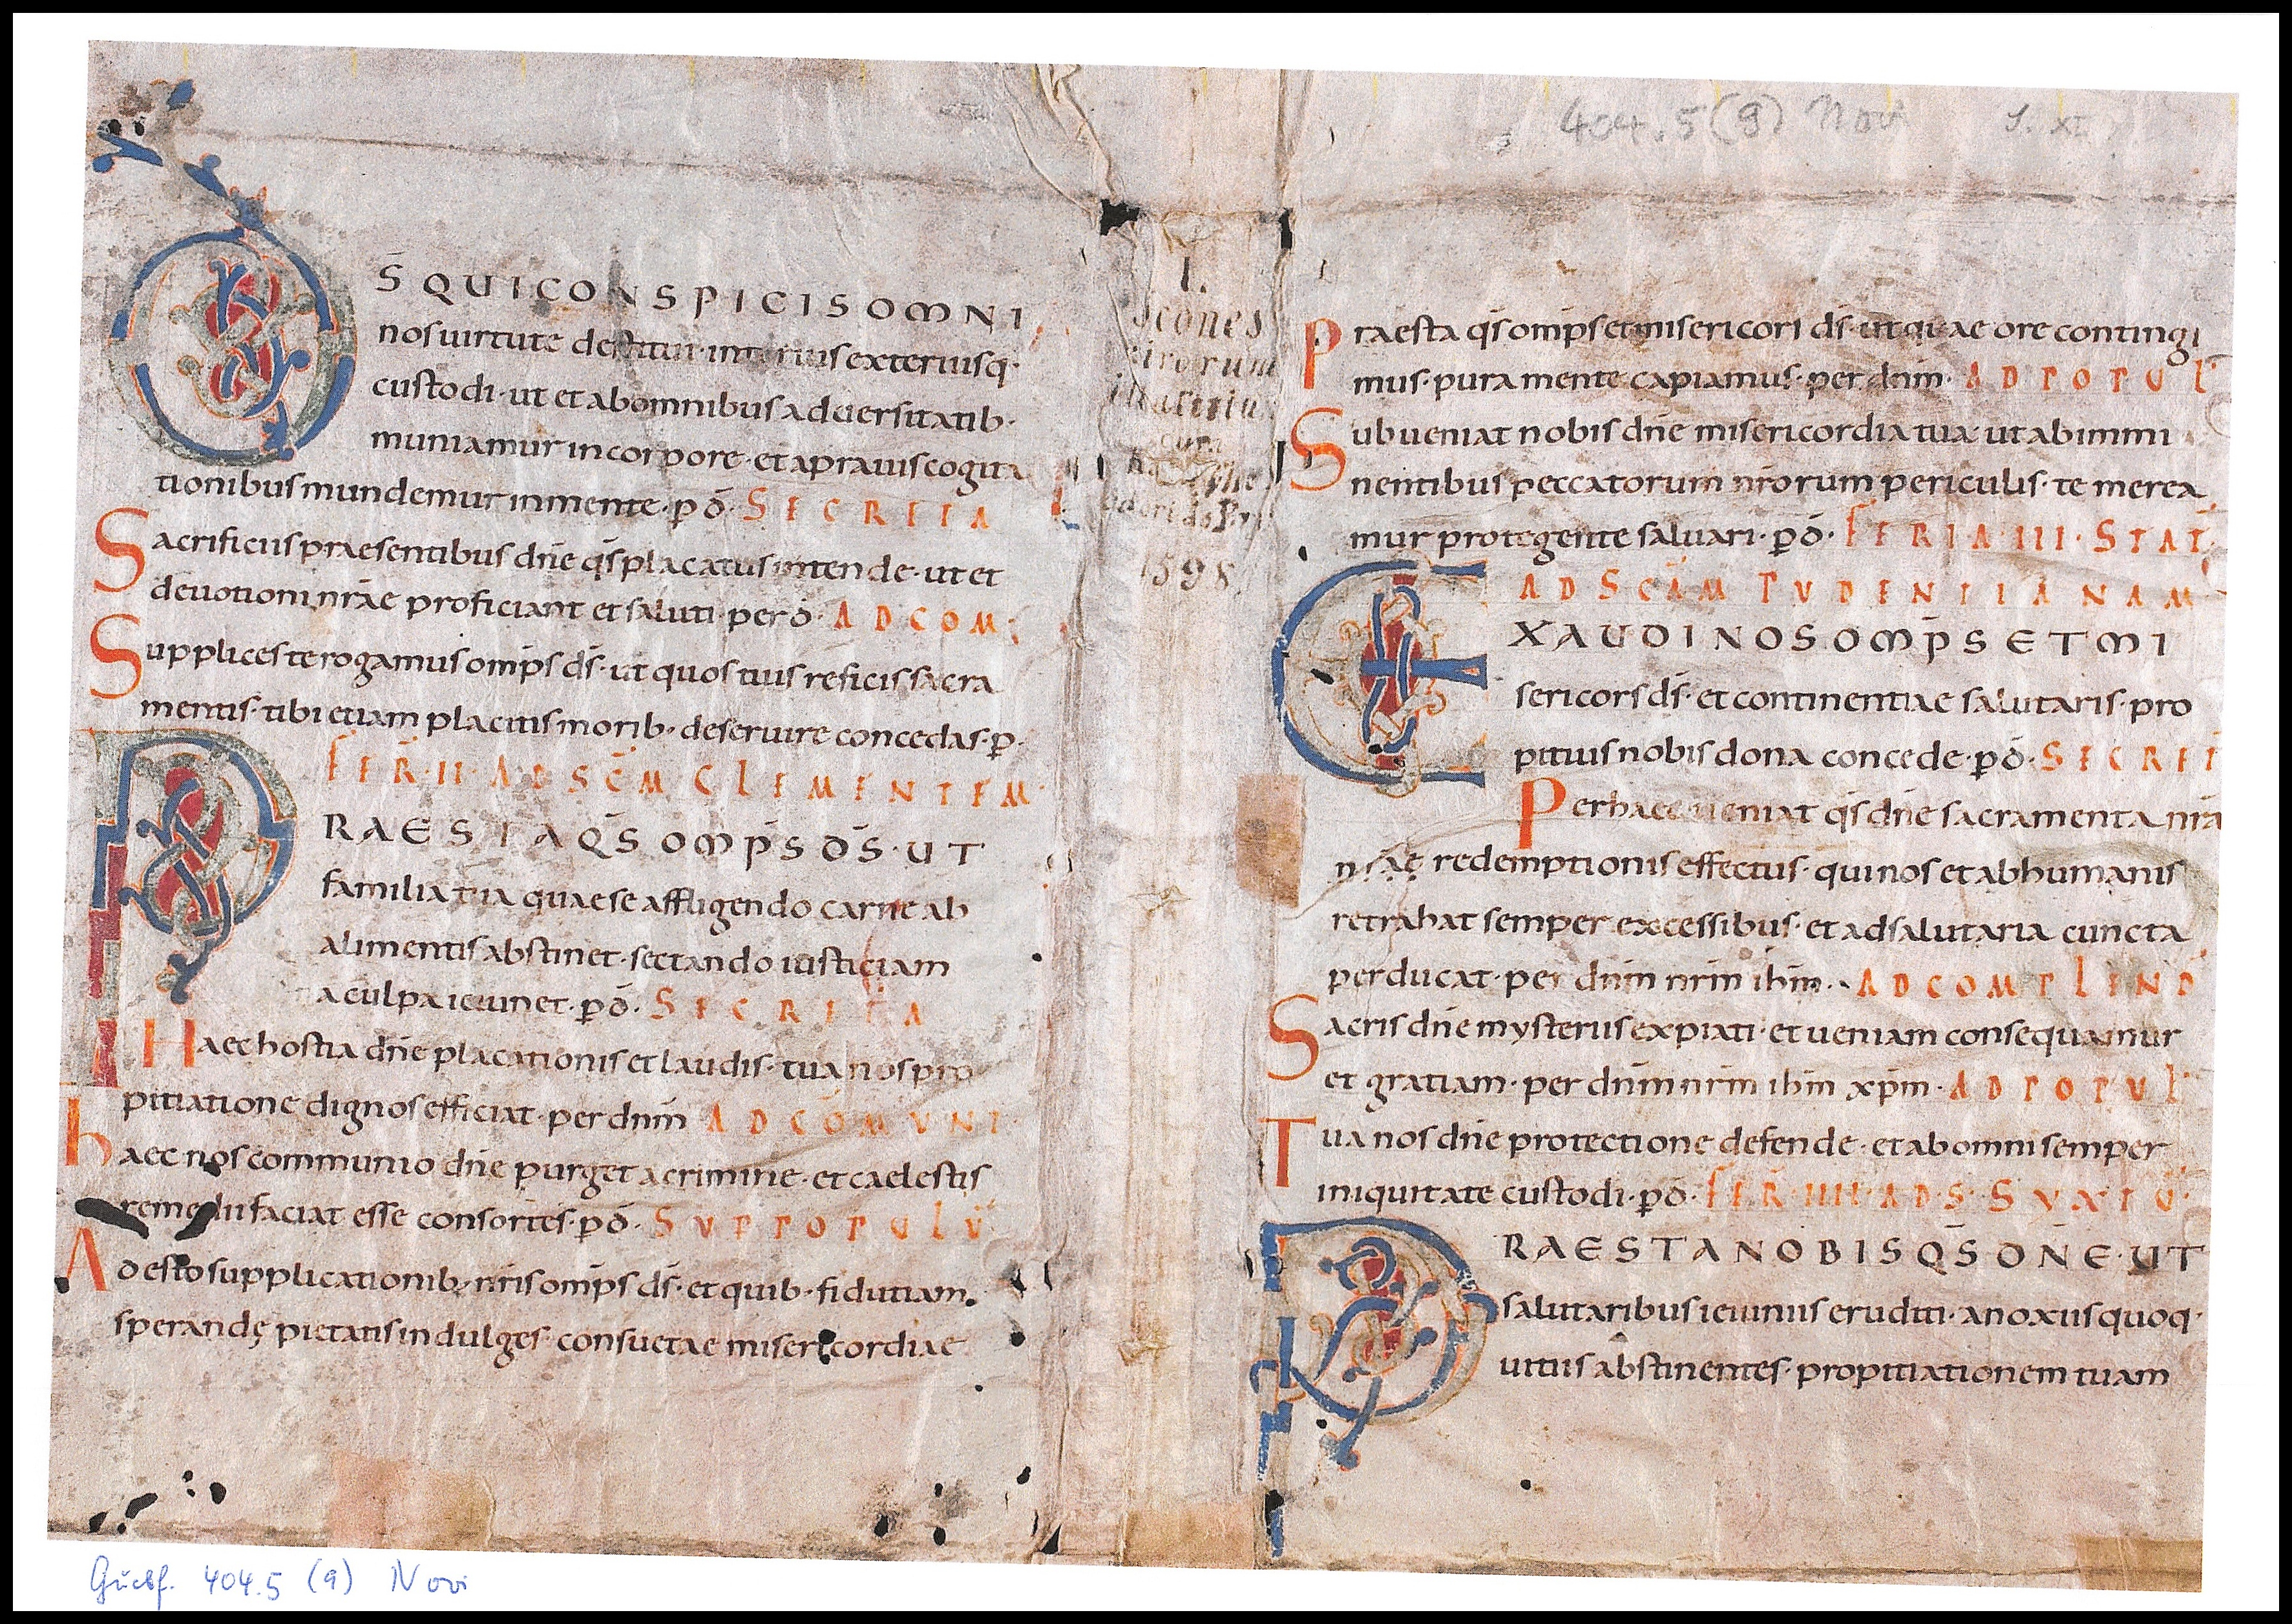 404.5 (9) Novi S. XI
D
S̄ QUI CONSPICIS OMNI
nos uirtute destitui· interius exteriusq·
custodi· ut et ab omnibus aduersitatib·
muniamur in corpore· et a prauis cogita
tionibus mundemur in mente· p̄ d̄· SECRETA
Sacrificiis praesentibus dn̄e qs̄ placatus intende· ut et
deuotioni nr̄ae proficiant et saluti· per d̄· AD COM·
Supplices te rogamus omp̄s ds̄· ut quos tuis reficis sacra
mentis· tibi etiam placitis morib· deseruire concedas· p̄·
FER̄· II· AD SC̄M CLEMENTEM·
PRAESTA QS̄ OMP̄S DS̄· UT
familia tua quae se affligendo carne ab
alimentis abstinet· sectando iusticiam
a culpa ieiunet· p̄ d̄· SECRETA
Haec hostia dn̄e placationis et laudis· tua nos pro
pitiatione dignos efficiat· per dnm̄ AD COMUNI·
haec nos communio dn̄e purget a crimine· et caelestis
remedii faciat esse consortes· p̄ d̄· SUP POPULŪ
Adesto supplicationib; nr̄is omp̄s ds̄· et quib· fidutiam
sperandę pietatis indulges· consuetae misericordiae
I.
icones
uirorum
illustriu
1598
Praesta qs̄ omp̄s et misericors ds̄· ut quae ore contingi
mus· pura mente capiamus· per dnm̄· AD POPUL
Subueniat nobis dn̄e misericordia tua· ut ab immi
nentibus peccatorum nr̄orum periculis· te merea
mur protegente saluari· p̄ d̄· FERIA III· STAT̄·
AD SC̄AM PUDENTIANAM
EXAUDI NOS OMP̄S ET MI
sericors ds̄· et continentiae salutaris· pro
pitius nobis dona concede· p̄ d̄· SECRET
Per haec ueniat qs̄ dn̄e sacramenta nrā
nr̄ae redemptionis effectus· qui nos et ab humanis
retrahat semper excessibus· et ad salutaria cuncta
perducat· per dnm̄ nrm̄ ihm̄· AD COMPLEND
Sacris dn̄e mysteriis expiati· et ueniam consequamur
et gratiam· per dnm̄ nrm̄ ihm̄ xp̄m· AD POPUL
Tua nos dn̄e protectione defende· et ab omni semper
iniquitate custodi· p̄ d̄· FER̄· IIII· AD· S· SYXTŪ·
PRAESTA NOBIS QS̄ DN̄E· UT
salutaribus ieiuniis eruditi· a noxiis quoq·
uitiis abstinentes· propitiationem tuam
Guelf. 404.5 (9) Novi